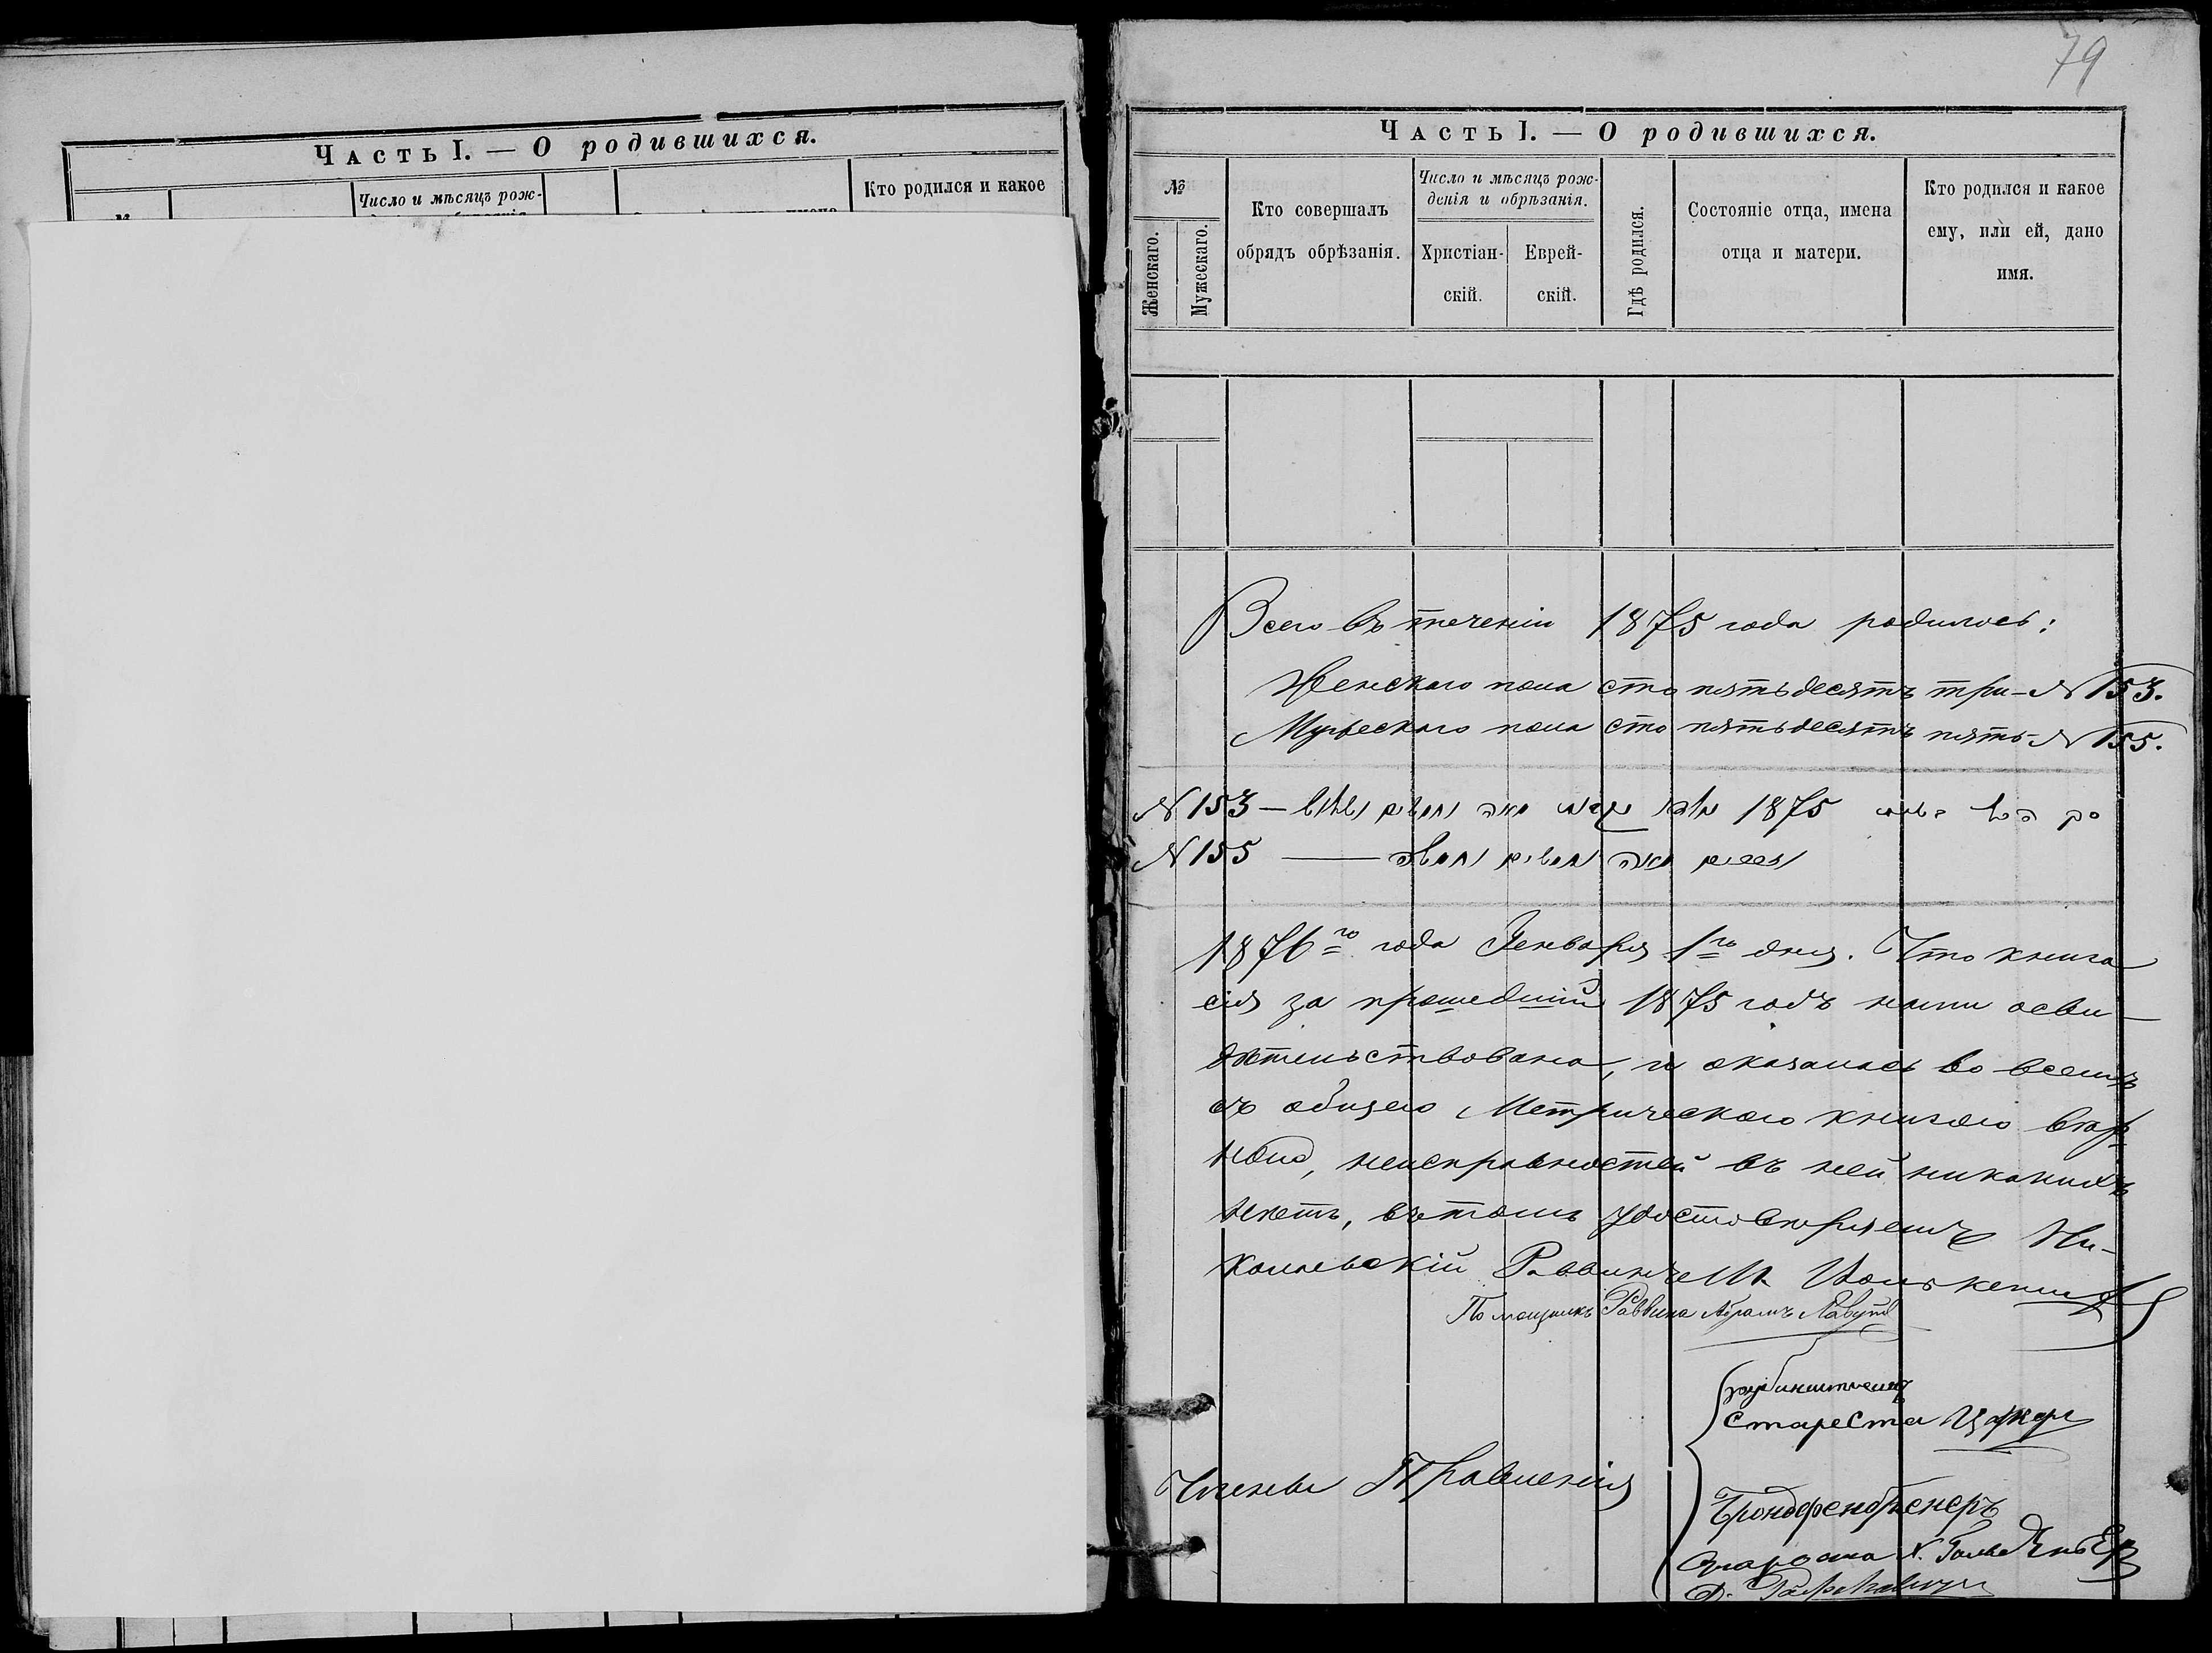 79
Часть I. — О родившихся.
Число и мѣсяцъ рож-
Кто родился и какое
Часть I. — О родившихся.
№
Женскаго.
Мужескаго.
Кто совершалъ
обрядъ обрѣзанія.
Число и мѣсяцъ рож-
денія и обрѣзанія.
Христіан-
скій.
Еврей-
скій.
Гдѣ родился.
Состояніе отца, имена
отца и матери.
Кто родился и какое
ему, или ей, дано
имя.
Всего въ теченіи 1875 года родилось:
Женскаго пола сто пятьдесятъ три - № 153.
Мужескаго пола сто пятьдесятъ пять - № 155.
№ 153 — 1875
№ 155 —
1876го года Генваря 1го дня. Что книга
сія за прошедшій 1875 годъ нами осви-
дѣтельствована, и оказалась во всемъ
съ общею Метрическою книгою вѣр-
ною, неисправностей въ ней никакихъ
нѣтъ, въ томъ удостовѣряемъ Ни-
колаевскій Раввинъ
Помощникъ Раввина Абрамъ
Староста
Члены Правленія